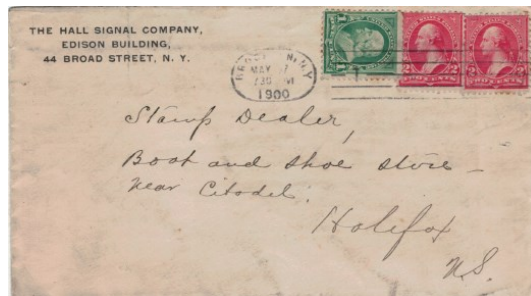 THE HALL SIGNAL COMPANY,
EDISON BUILDING,
44 BROAD STREET, N. Y.
MAY 7
7 30 PM
1900
1
2
2
Stamp Dealer,
Boot and Shoe store –
near Citadel.
Halifax
N.S.